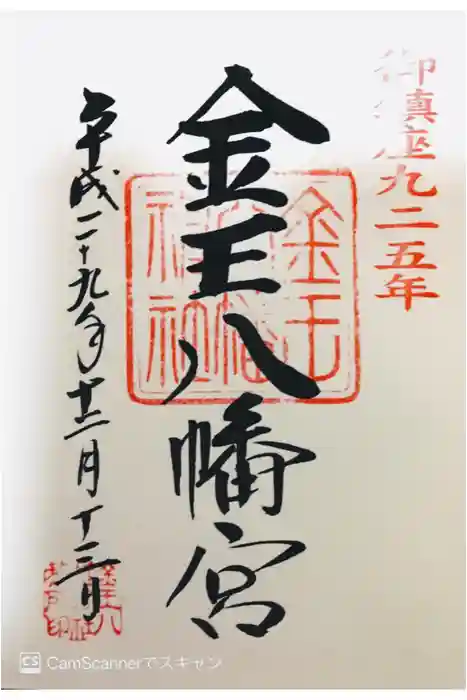 御鎮座九二五年
金王八幡宮
平成二十九年十二月十三日
金王八幡神社
CS CamScannerでスキャン